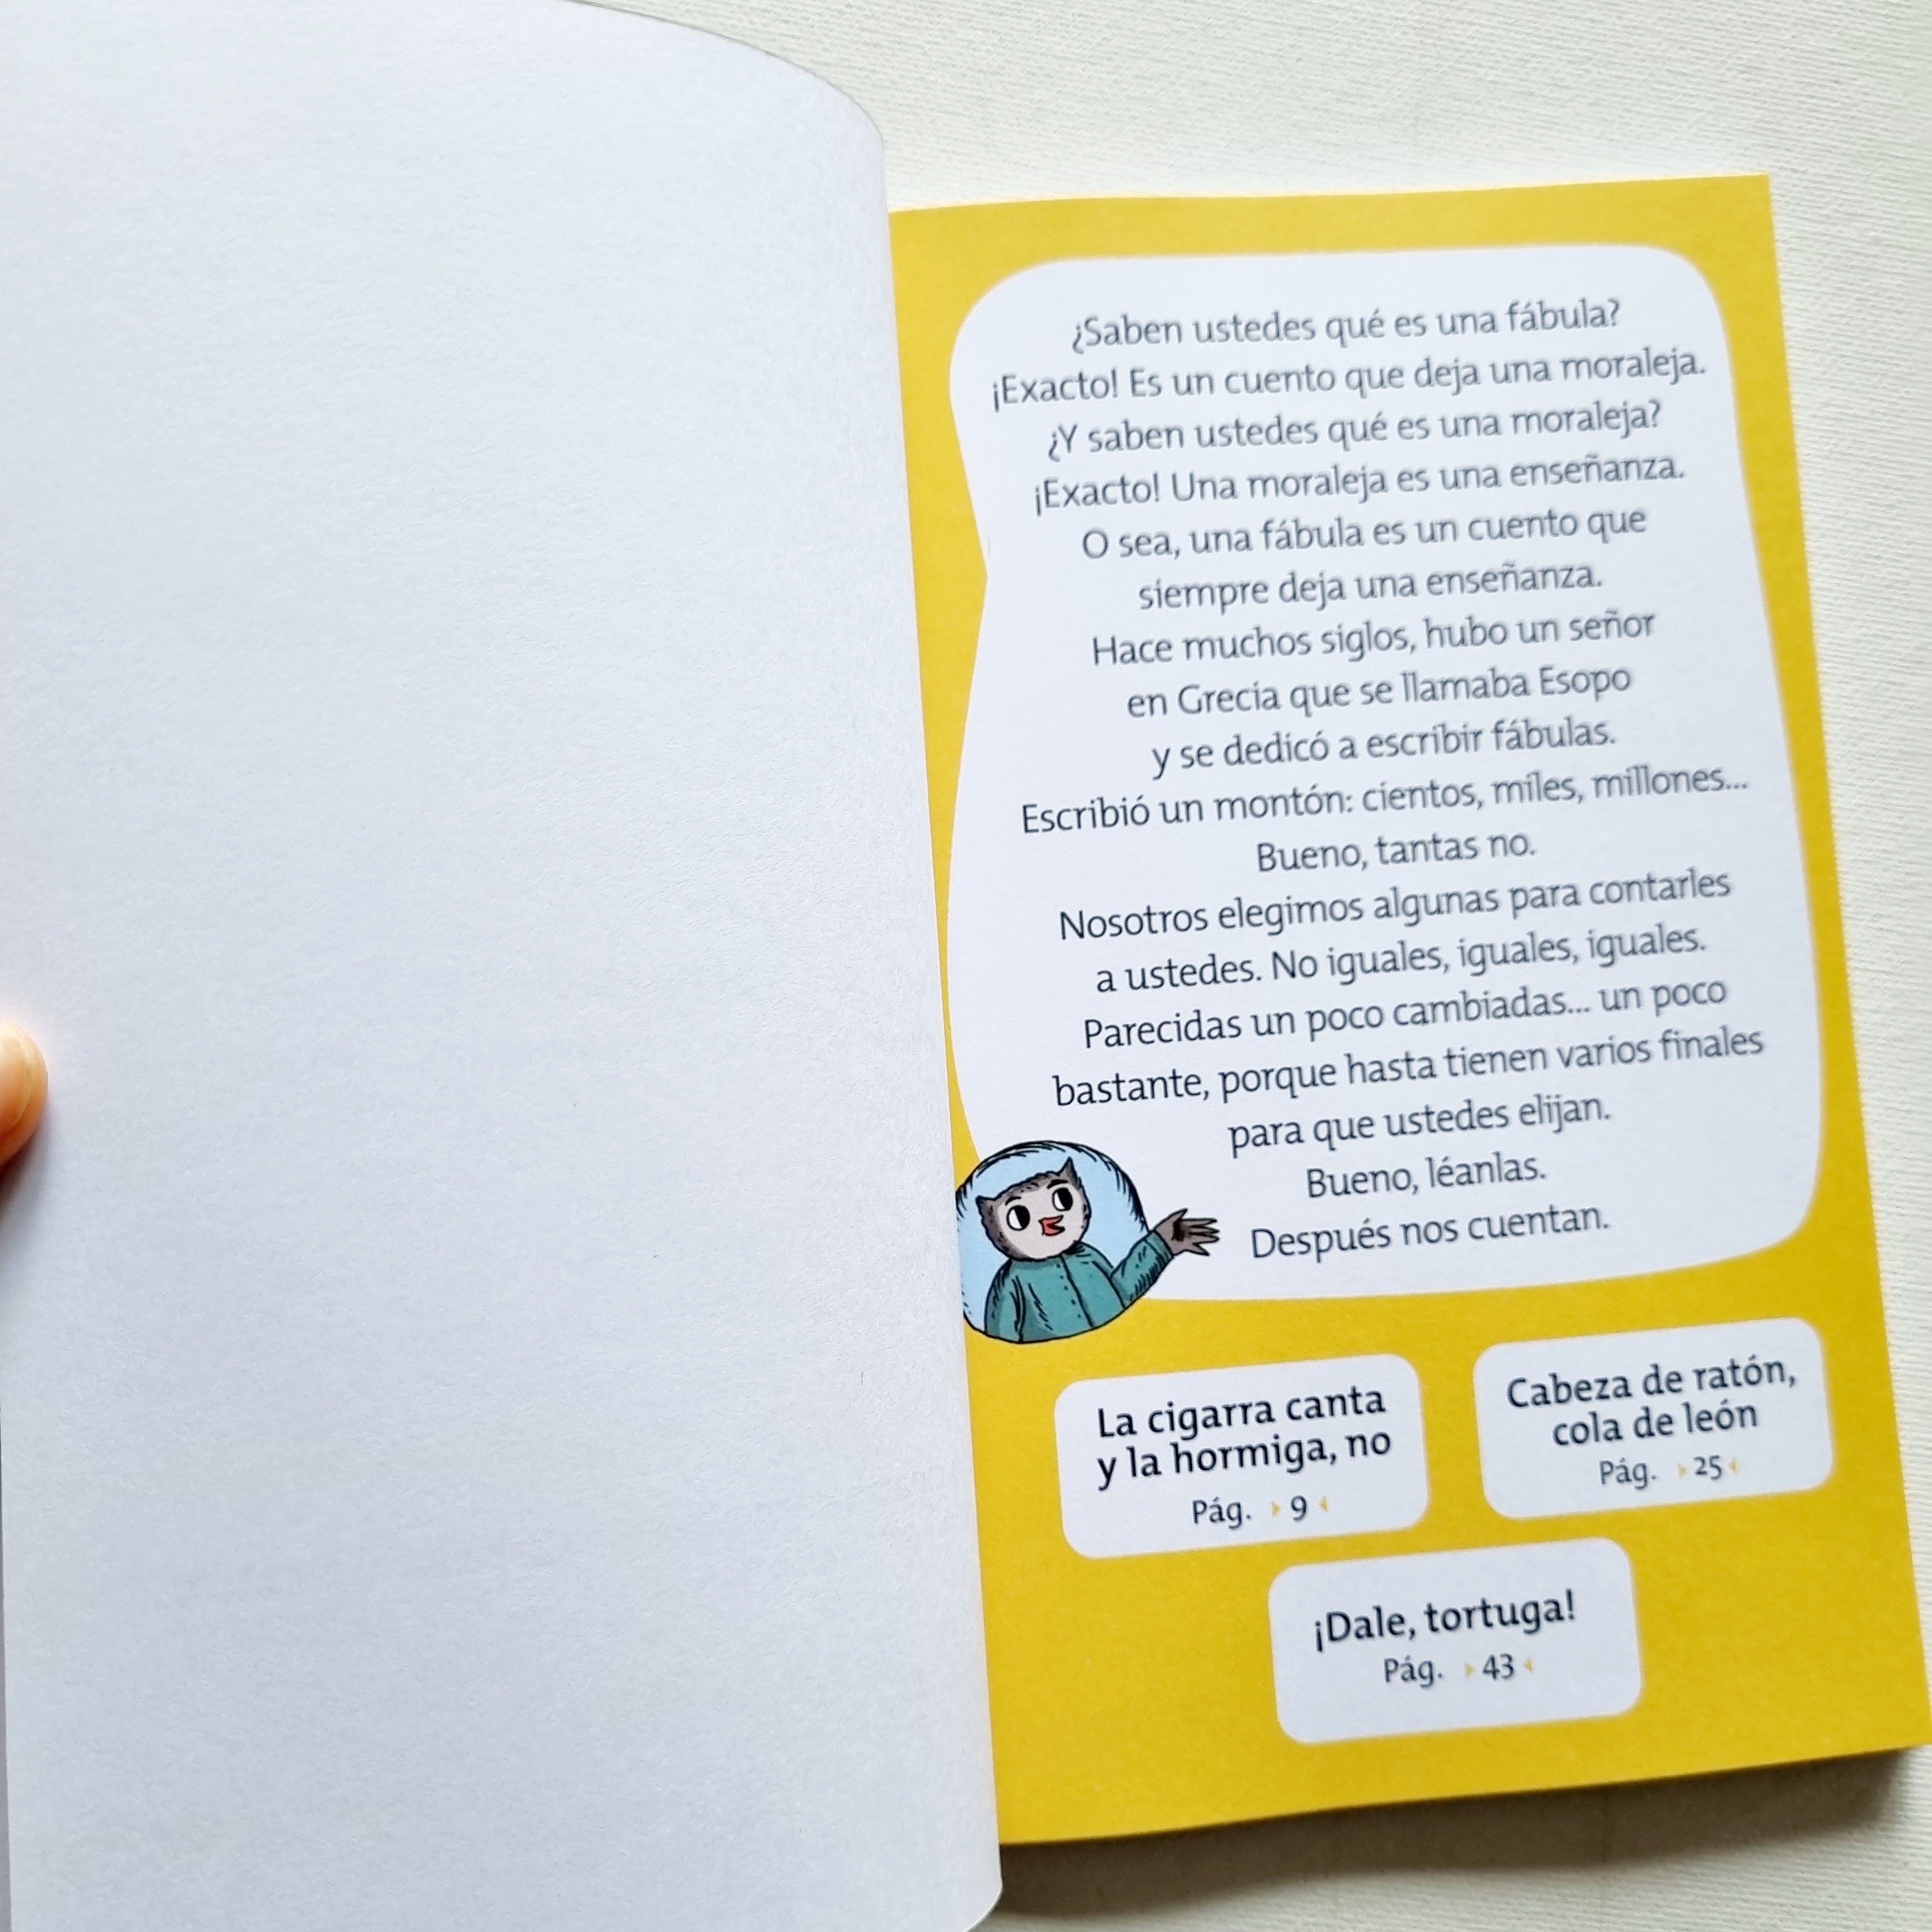 ¿Saben ustedes qué es una fábula?
¡Exacto! Es un cuento que deja una moraleja.
¿Y saben ustedes qué es una moraleja?
¡Exacto! Una moraleja es una enseñanza.
O sea, una fábula es un cuento que
siempre deja una enseñanza.
Hace muchos siglos, hubo un señor
en Grecia que se llamaba Esopo
y se dedicó a escribir fábulas.
Escribió un montón: cientos, miles, millones...
Bueno, tantas no.
Nosotros elegimos algunas para contarles
a ustedes. No iguales, iguales, iguales.
Parecidas un poco cambiadas... un poco
bastante, porque hasta tienen varios finales
para que ustedes elijan.
Bueno, léanlas.
Después nos cuentan.
La cigarra canta
y la hormiga, no
Pág. 9
Cabeza de ratón,
cola de león
Pág. 25
¡Dale, tortuga!
Pág. 43